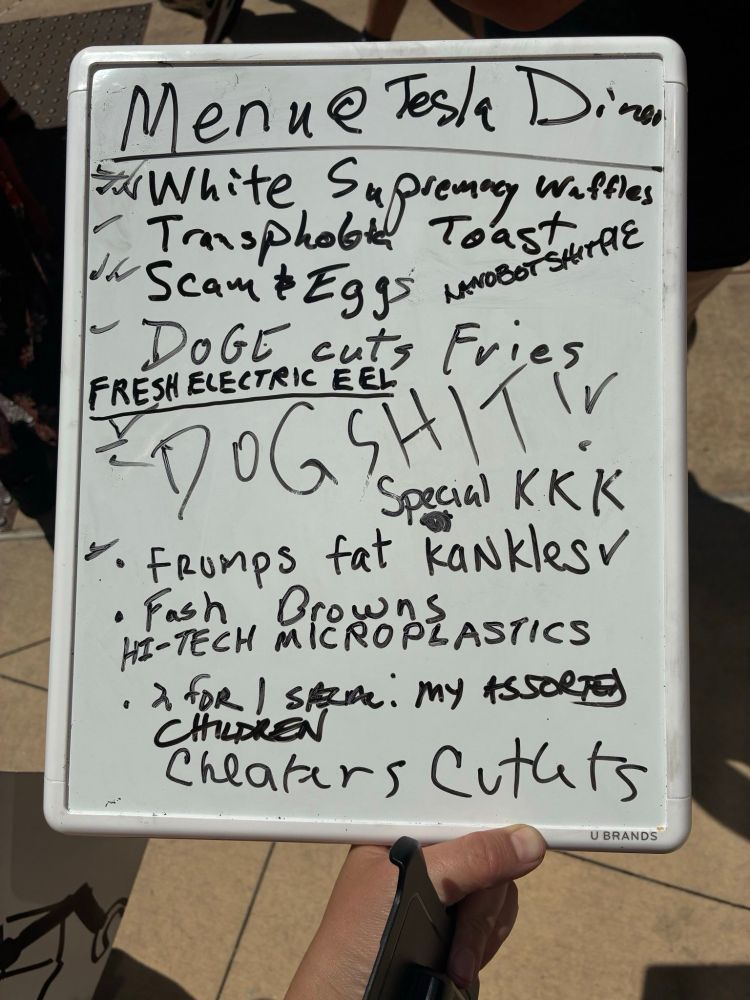 Menu @ Tesla Diner
White Supremacy Waffles
Transphobia Toast
NANOBOT SHIT PIE
Scam & Eggs
DOGE cuts Fries
FRESH ELECTRIC EEL
DOGSHIT!
Special KKK
• FRUMPS fat KANKlES
• Fash Browns
HI-TECH MICROPLASTICS
• 2 FOR 1 SPECIAL: MY ASSORTED
CHILDREN
Cheaters Cutlets
U BRANDS